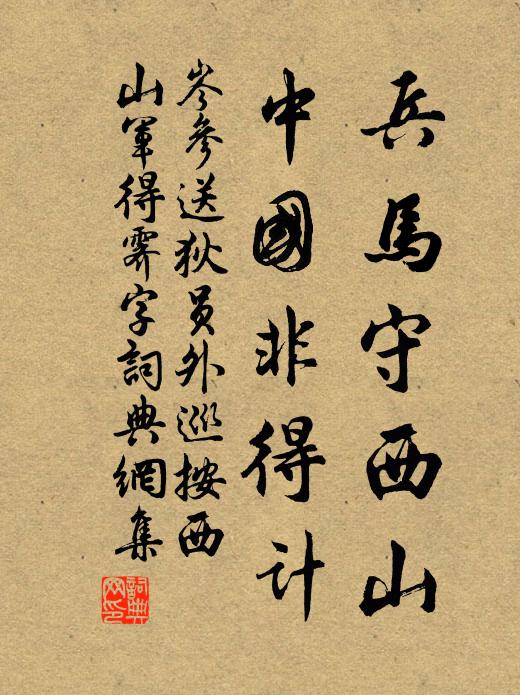 兵馬守西山
中國非得計
岑參送狄员外巡按西
山軍得霽字詞典網集
詞典网印